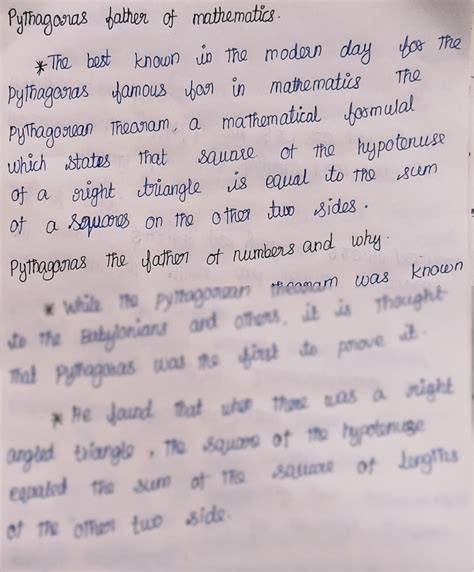 Pythagoras father of mathematics.
* The best known in the modern day for the
Pythagoras famous for in mathematics The
Pythagorean Theoram, a mathematical formulal
which states That square of the hypotenuse
of a right triangle is equal to the sum
of a squares on the other two sides.
Pythagoras the father of numbers and why.
* While the pythagorean theoram was known
to the Babylonians and others, it is Thought
That Pythagoras was the first to prove it.
* He found that when There was a right
angled triangle, The square of the hypotenuse
equaled The sum of The square of lengths
of the other two side.